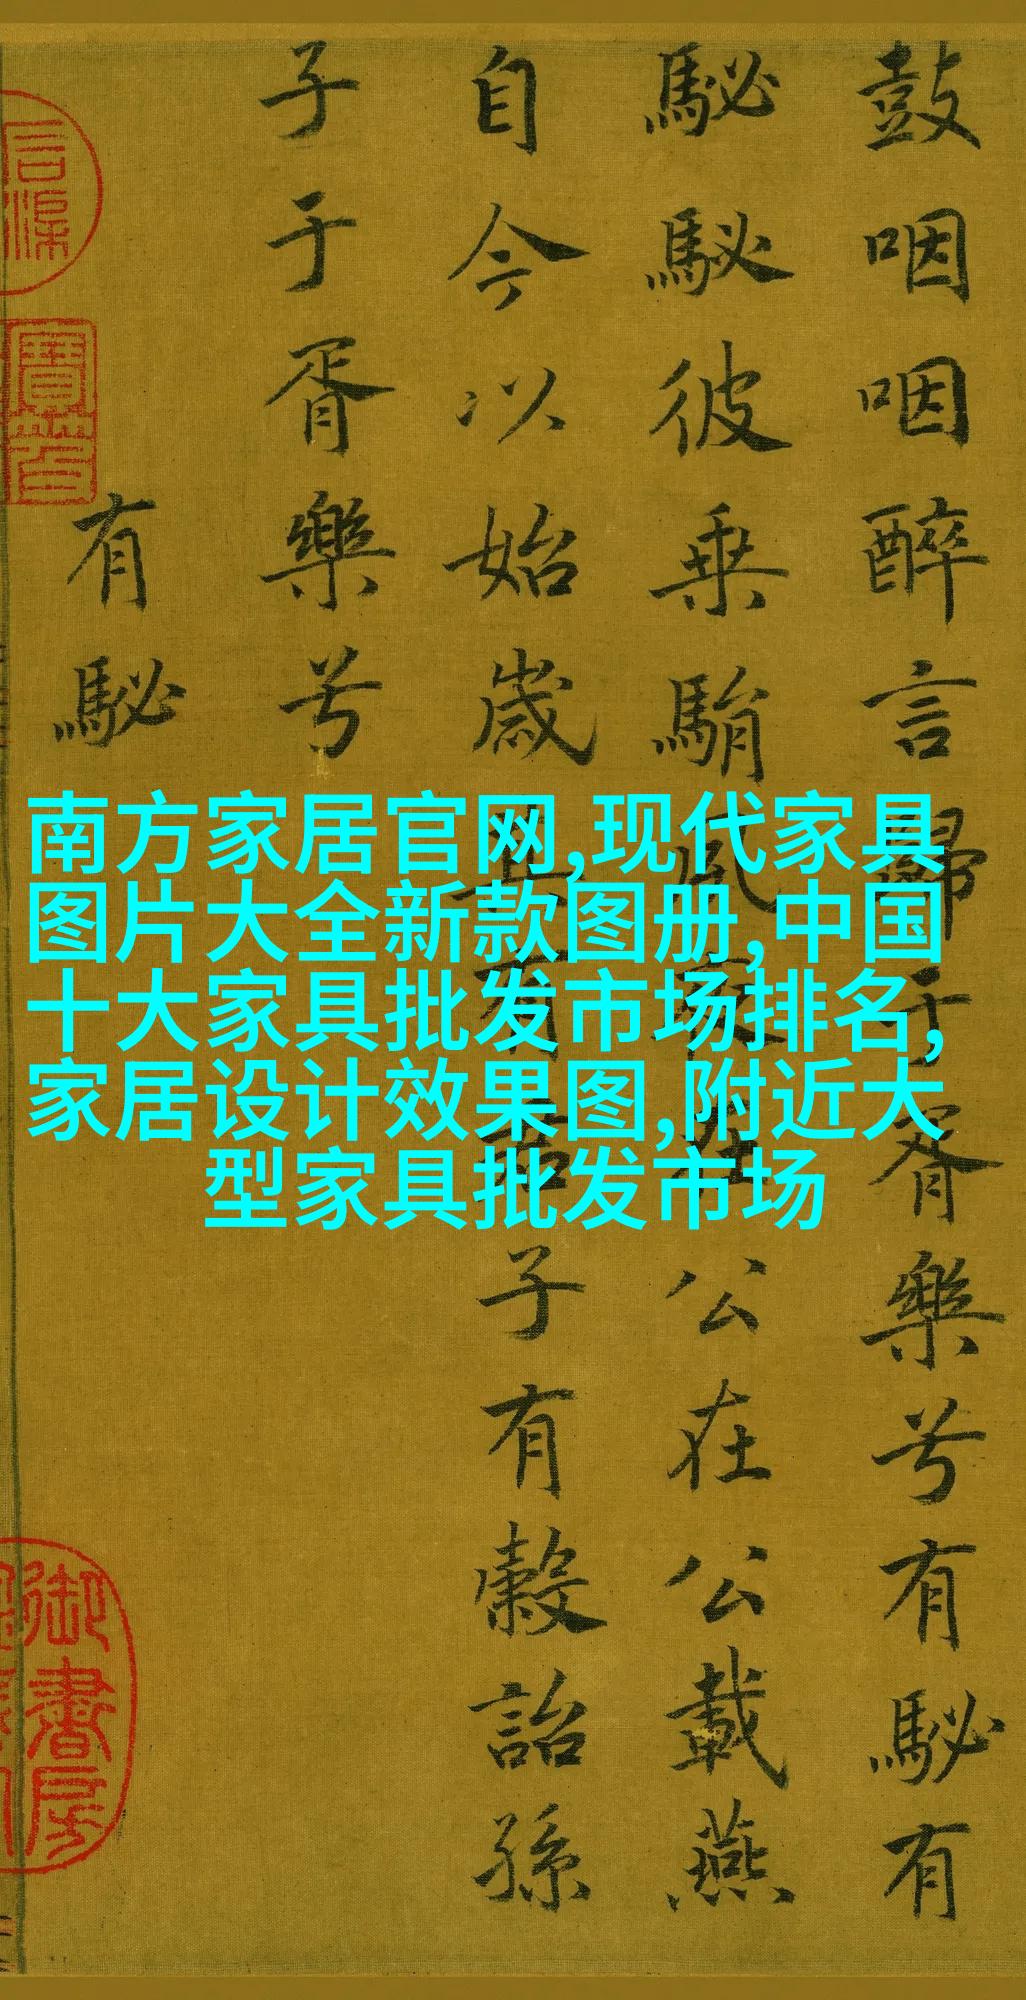 鼓咽咽醉言歸于胥樂兮有駜有
駜駜彼乗駽夙夜在公在公載燕
自今以始歲其有君子有穀詒孫
子于胥樂兮
有駜
南方家居官网,现代家具
图片大全新款图册,中国
十大家具批发市场排名,
家居设计效果图,附近大
型家具批发市场
御書房